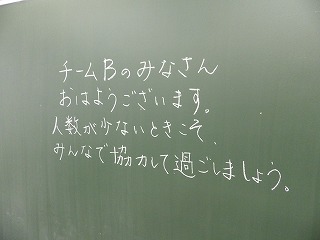 チームBのみなさん
おはようございます。
人数が少ないときこそ、
みんなで協力して過ごしましょう。